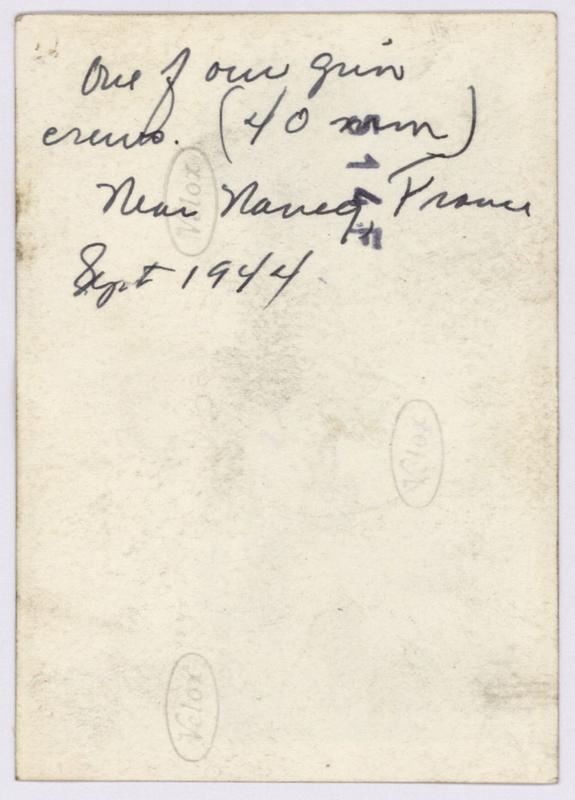 One of our gun
crews. (40 mm)
Near Nancy, France
Sept 1944
Velox
Velox
Velox